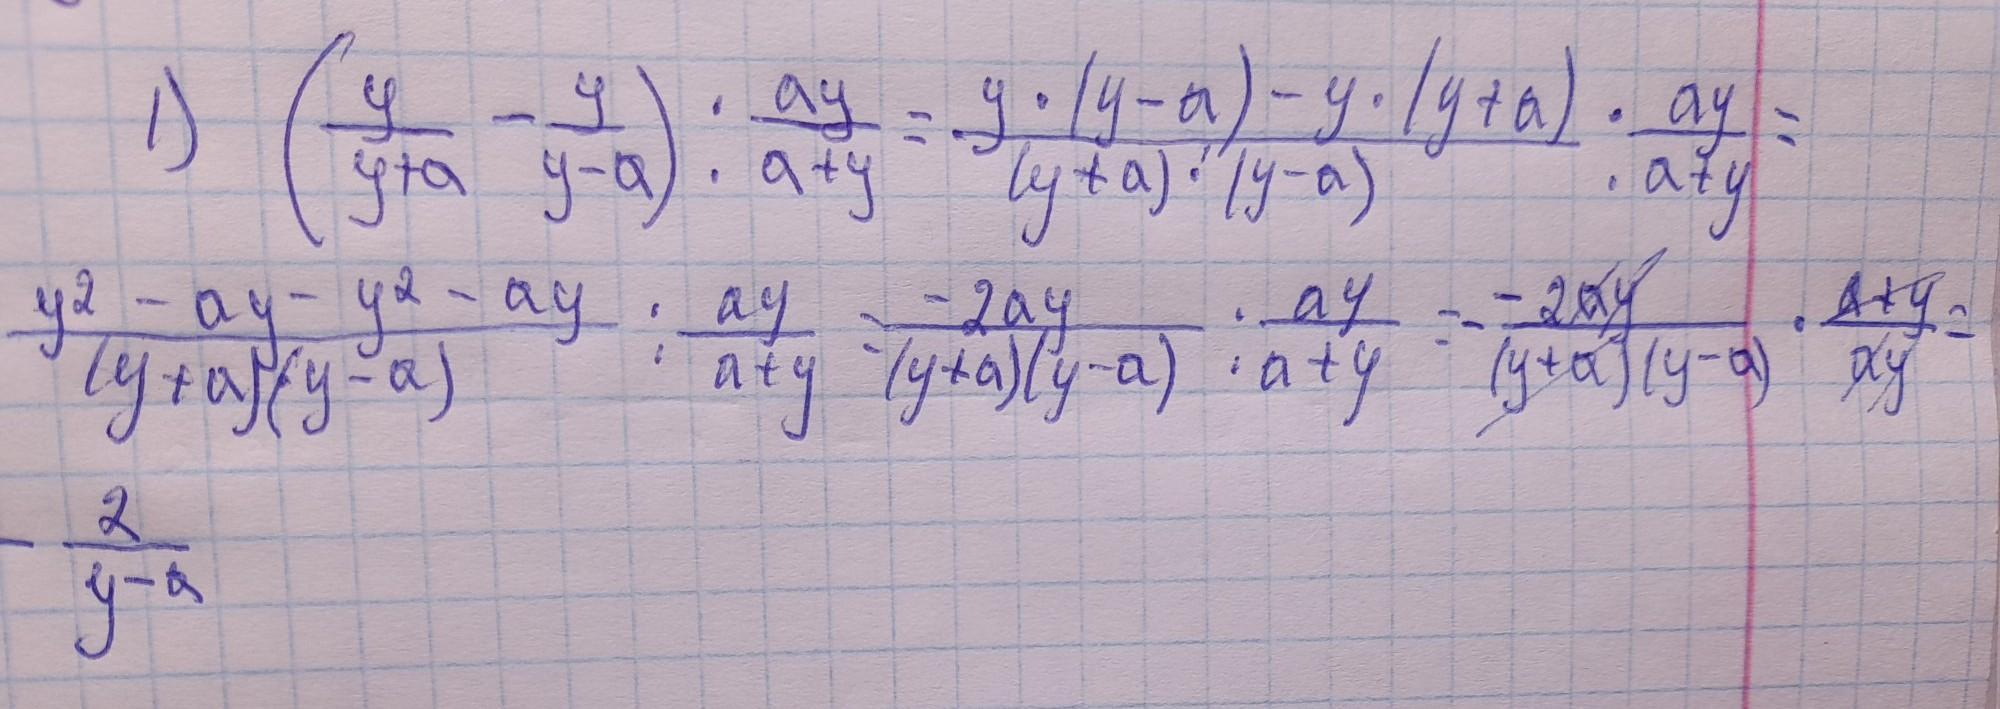 1) (y/(y+a) - y/(y-a)) : ay/(a+y) = (y·(y-a)-y·(y+a))/((y+a)·(y-a)) : ay/(a+y) =
(y²-ay-y²-ay)/((y+a)(y-a)) : ay/(a+y) = -2ay/((y+a)(y-a)) : ay/(a+y) = - -2ay/((y+a)(y-a)) · (a+y)/ay =
- 2/(y-a)